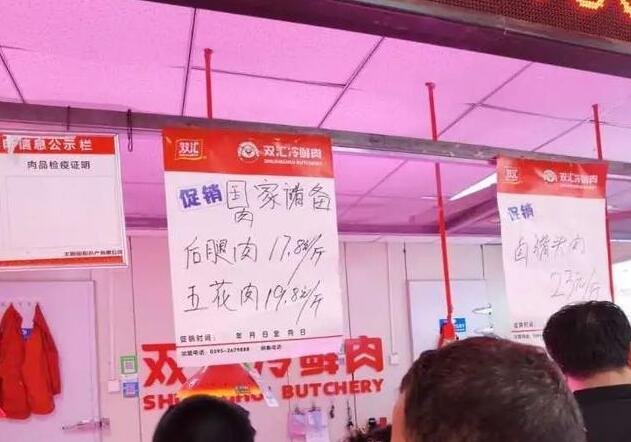 息公示栏
肉品检疫证明
双汇
双汇冷鲜肉
SHUANGHUI BUTCHERY
促销 国家储备
肉
后腿肉 17.8元/斤
五花肉 19.8元/斤
促销时间： 年 月 日至 月 日
加盟电话：0395-2679888
双汇
双汇冷鲜肉
促销
卤猪头肉
23元/斤
双 冷鲜肉
BUTCHERY